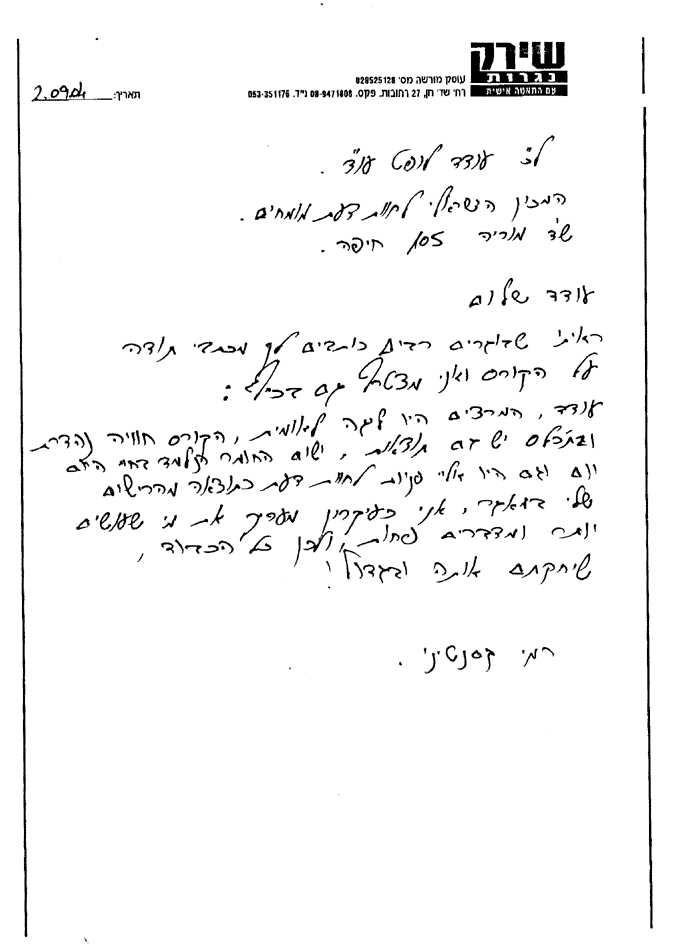 שירק
נגרות
עם התאמה אישית
עוסק מורשה מס' 028525128
רח' שד' חן, 27 רחובות. פקס. 08-9471808 נייד. 053-351176
תאריך: 2.09.04
לכ' עודד לופט עו"ד.
המכון הישראלי לחוות דעת מומחים.
שד' מוריה 105 חיפה.
עודד שלום
ראיתי שבוגרים רבים כותבים לך מכתבי תודה
על הקורס ואני מצטרף גם בכיף:
עודד, המרצים היו ליגה לאומית, הקורס חוויה נהדרת
ובתכלס יש גם תוצאות, ישום החומר הנלמד בחיי היום
יום וגם היו אלי פניות לחוות דעת כתוצאה מהרישום
שלי במאגר, אני כעיקרון מעריך את מי שעושים
יותר ומדברים פחות, ולכן כל הכבוד,
שיחקתם אותה ובגדול!
רמי קסנטיני.